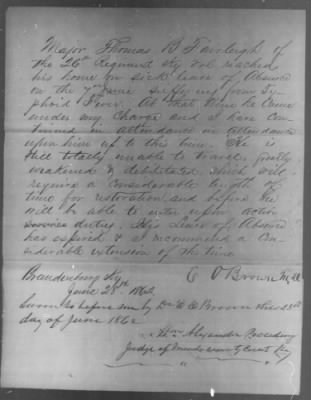 Major Thomas B Fairleigh of
the 26th Regiment Ky Vol reached
his home on sick leave of Absence
on the 7th June suffering from Ty-
phoid Fever. At that time he Came
under my Charge and I have Con-
tinued in attendance in attendance
upon him up to this time. He is
still totally unable to travel, greatly
weakened & debilitated which will
require a Considerable length of
time for restoration and before he
will be able to enter upon active
service duties. His Leave of Absence
has expired & I recommend a Con-
siderable extension of the time
C O Brown M.D.
Brandenburg Ky
June 28th 1862
Sworn to before me by Dr C O Brown this 28th
day of June 1862
Wm Alexander Presiding
Judge of Meade County Court Ky